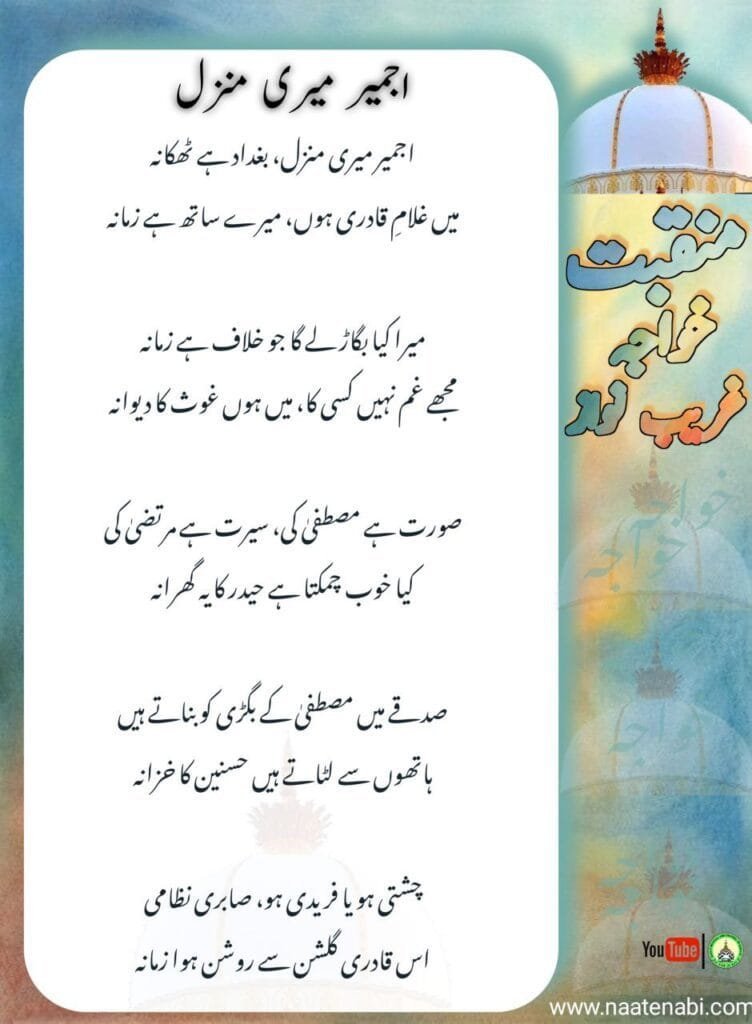 اجمیر میری منزل
اجمیر میری منزل، بغداد ہے ٹھکانہ
میں غلامِ قادری ہوں، میرے ساتھ ہے زمانہ
میرا کیا بگاڑلے گا جو خلاف ہے زمانہ
مجھے غم نہیں کسی کا، میں ہوں غوث کا دیوانہ
صورت ہے مصطفیٰ کی، سیرت ہے مرتضیٰ کی
کیا خوب چمکتا ہے حیدر کا یہ گھرانہ
صدقے میں مصطفیٰ کے بگڑی کو بناتے ہیں
ہاتھوں سے لٹاتے ہیں حسنین کا خزانہ
چشتی ہو یا فریدی ہو، صابری نظامی
اس قادری گلشن سے روشن ہوا زمانہ
منقبت
خواجہ
غریب نواز
خواجہ
خواجہ
خواجہ
YouTube
www.naatenabi.com